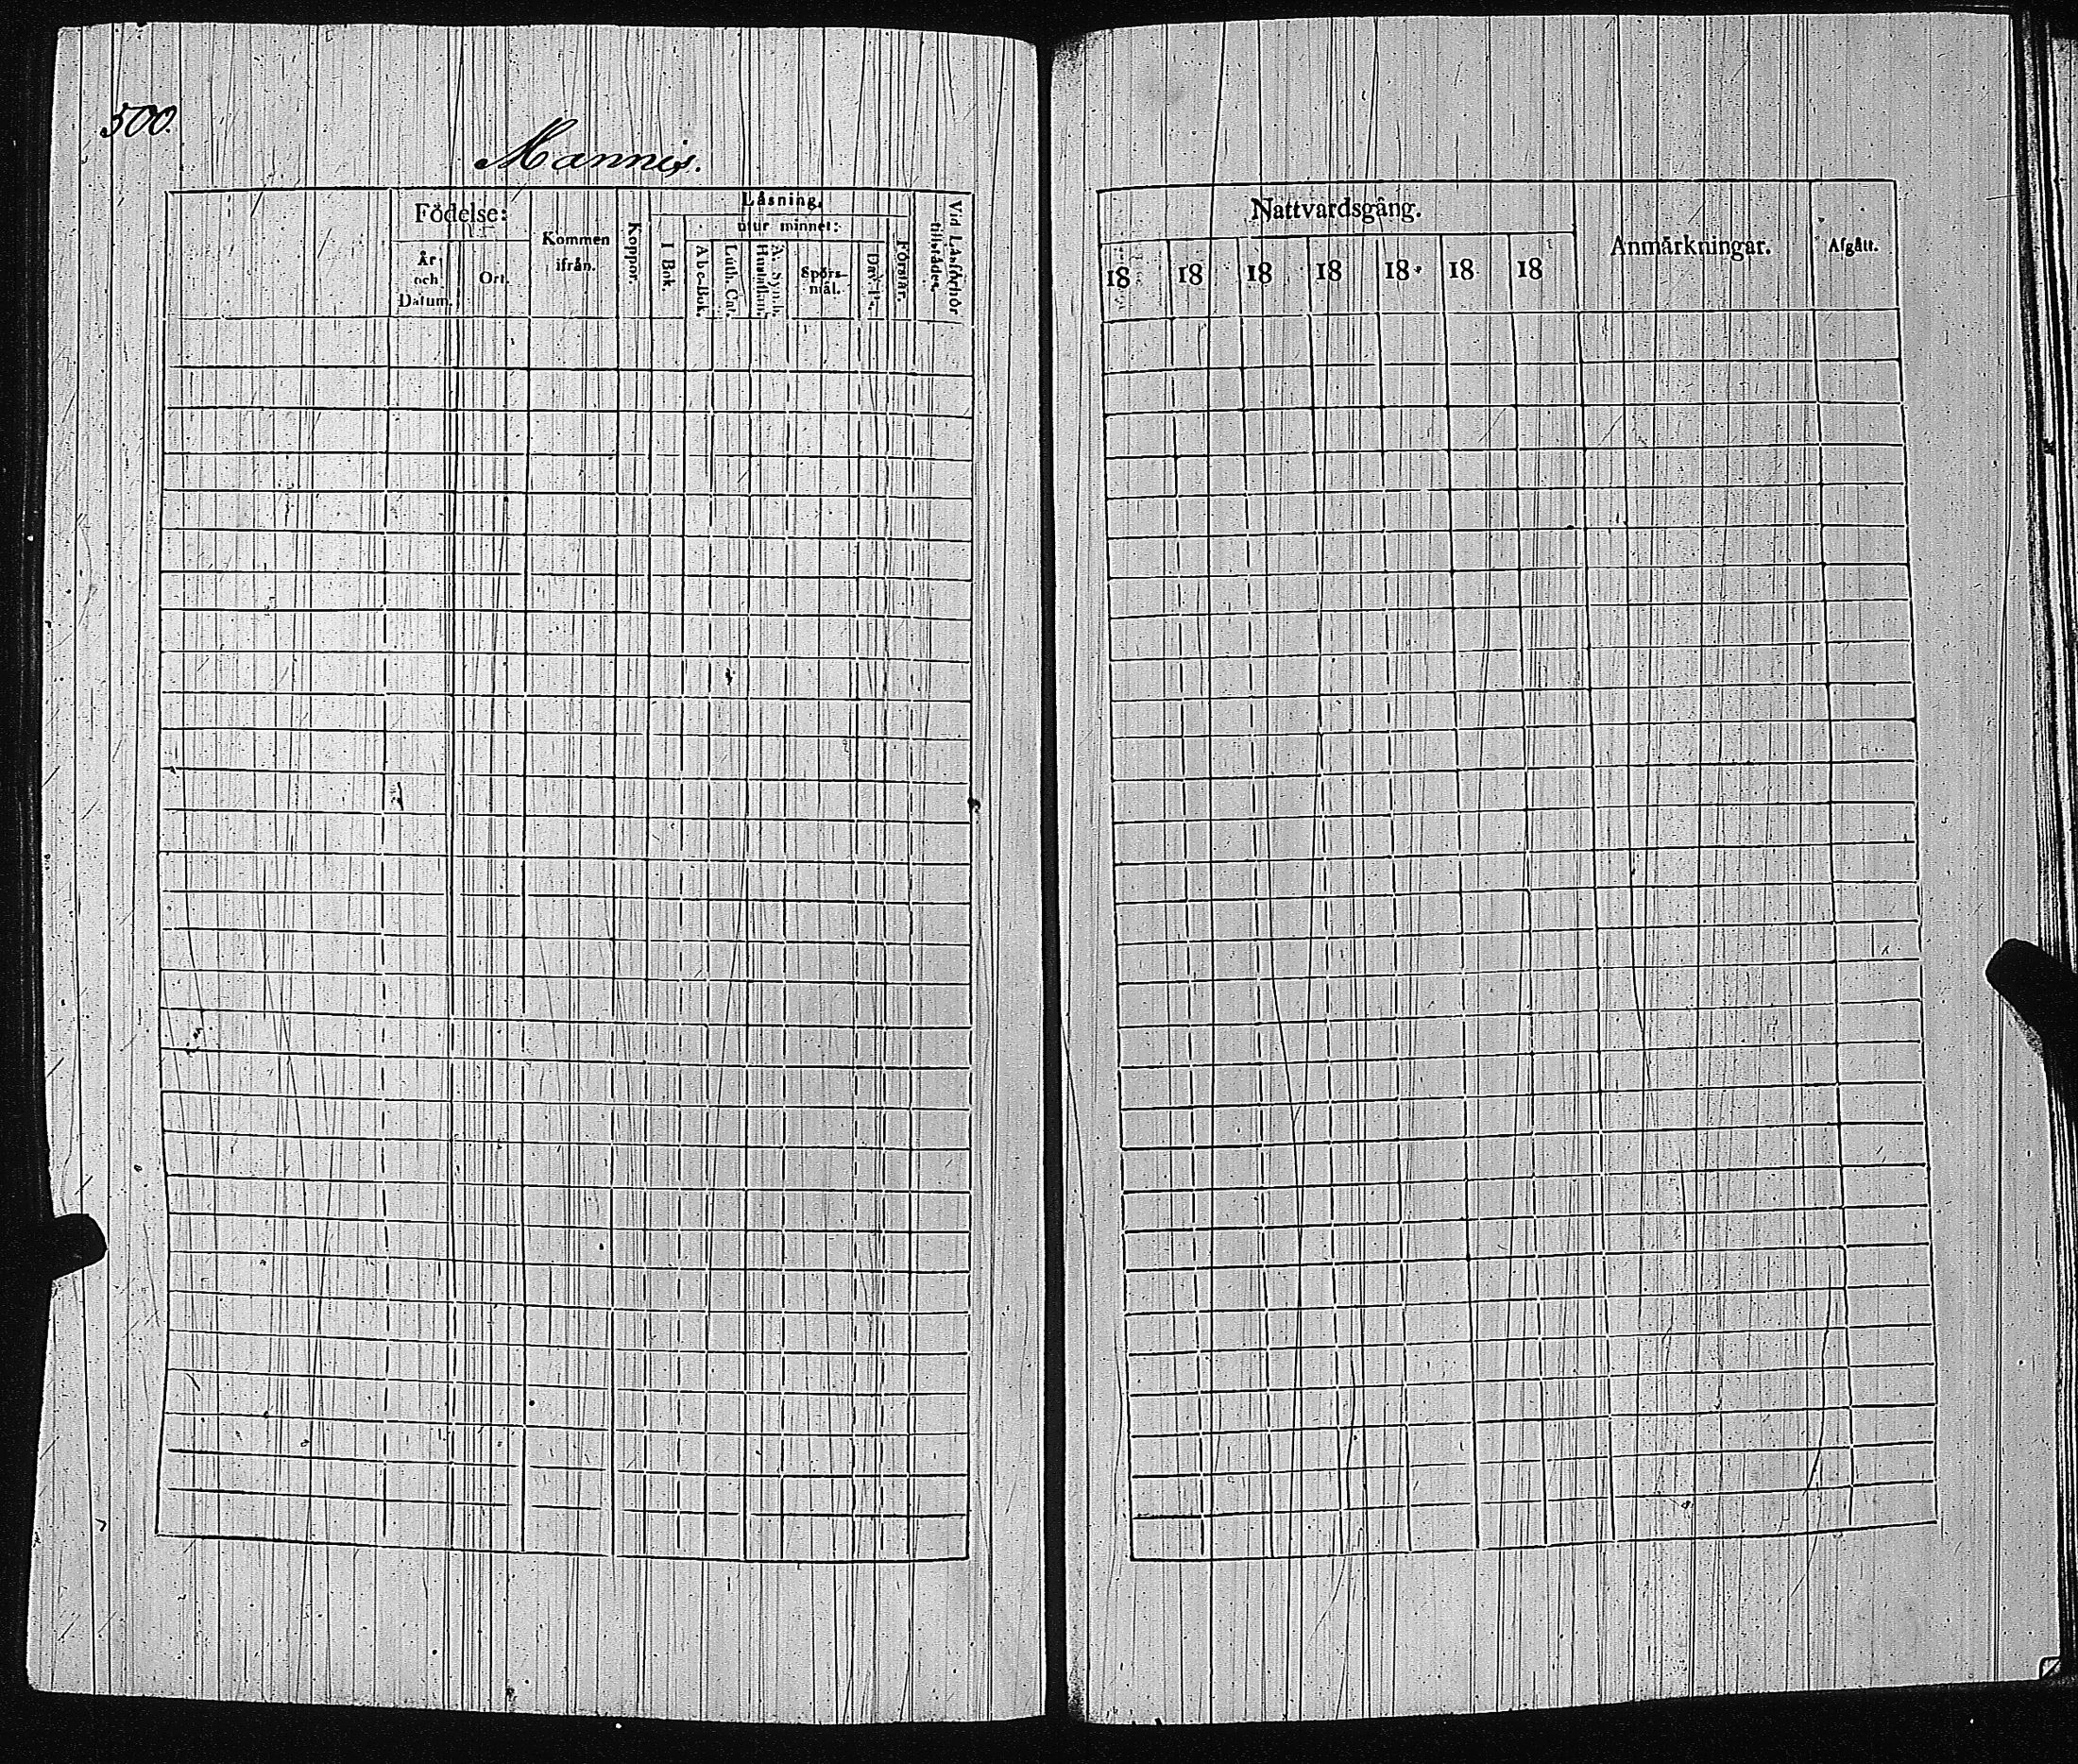 500.
Mannis.
Födelse:
År och Datum.
Ort.
Kommen ifrån.
Koppor.
Läsning.
I Bok.
utur minnet:
Abc-Bok.
Luth. Cat.
Hustaflan. A. Symb.
Spörs-mål.
Förstår.
Vid Läsförhör tillstädes.
Nattvardsgång.
18 18 18 18 18 18 18
Anmärkningar.
Afgått.